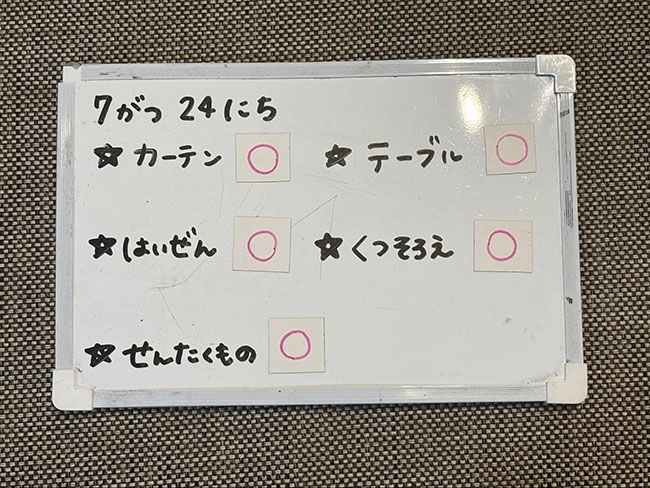 7がつ 24にち
☆カーテン ○ ☆テーブル ○
☆はいぜん ○ ☆くつそろえ ○
☆せんたくもの ○